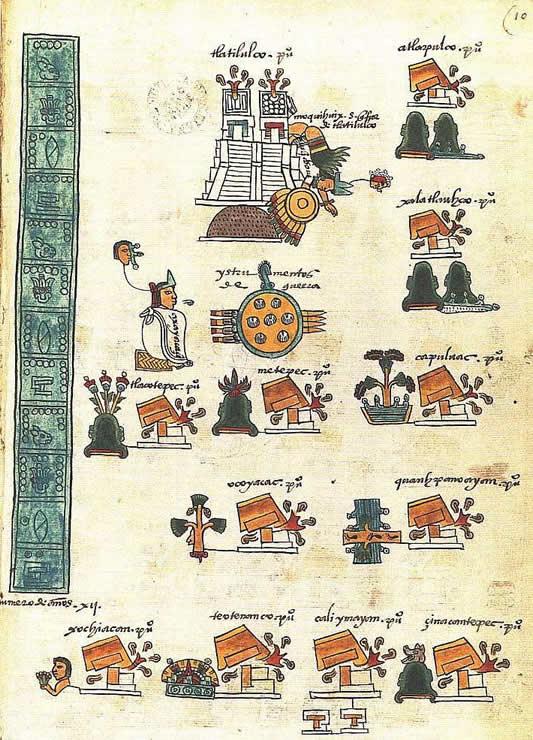 10
tlatilulco . pũ
atlapulco . pũ
moquihuix . s
de tlatilulco
xalatlauhco . pũ
ystrumentos
de guerra
axayacaçi
tlacotepec . pũ
metepec . pũ
capuluac . pũ
ocoyacac . pũ
quauhpanoayan . pũ
numero de años . xij.
xochiacan . pũ
teotenanco . pũ
caliymayan . pũ
çinacantepec . pũ